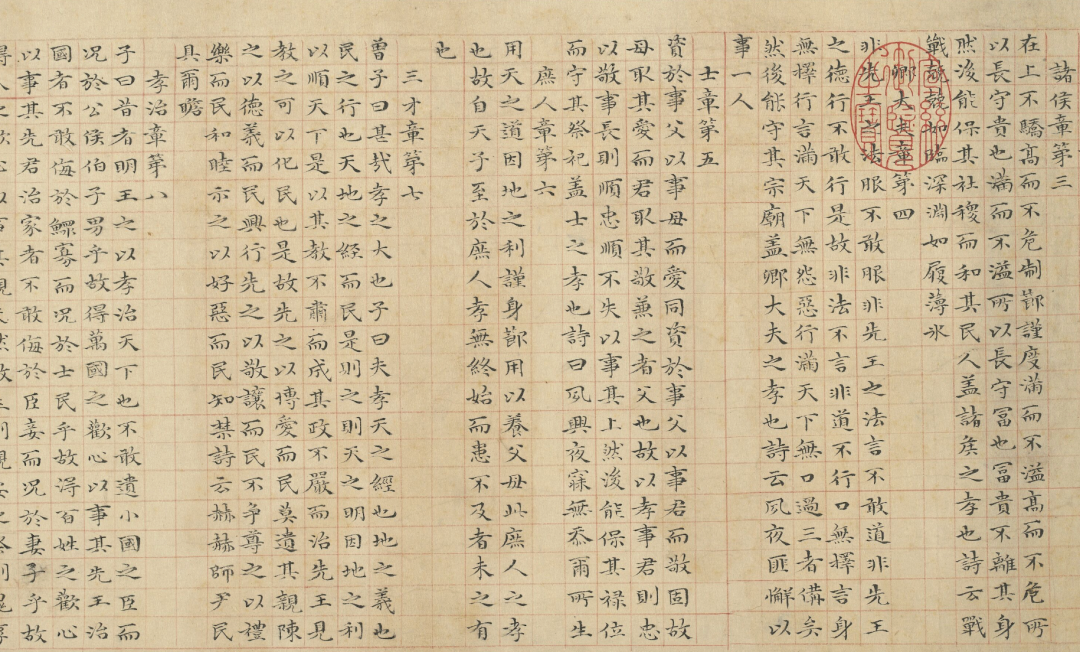 諸侯章第三
在上不驕高而不危制節謹度滿而不溢高而不危所
以長守貴也滿而不溢所以長守冨也冨貴不離其身
然後能保其社稷而和其民人盖諸侯之孝也詩云戰
戰兢兢如臨深淵如履薄氷
卿大夫章第四
非先王之法服不敢服非先王之法言不敢道非先王
之德行不敢行是故非法不言非道不行口無擇言身
無擇行言滿天下無怨惡行滿天下無口過三者備矣
然後能守其宗廟盖卿大夫之孝也詩云夙夜匪懈以
事一人
士章第五
資於事父以事母而愛同資於事父以事君而敬固故
母取其愛而君取其敬兼之者父也故以孝事君則忠
以敬事長則順忠順不失以事其上然後能保其祿位
而守其祭祀盖士之孝也詩曰夙興夜寐無忝爾所生
庶人章第六
用天之道因地之利謹身節用以養父母此庶人之孝
也故自天子至於庶人孝無終始而患不及者未之有
也
三才章第七
曾子曰甚哉孝之大也子曰夫孝天之經也地之義也
民之行也天地之經而民是則之則天之明因地之利
以順天下是以其教不肅而成其政不嚴而治先王見
教之可以化民也是故先之以博愛而民莫遺其親陳
之以德義而民興行先之以敬讓而民不爭導之以禮
樂而民和睦示之以好惡而民知禁詩云赫赫師尹民
具爾瞻
孝治章第八
子曰昔者明王之以孝治天下也不敢遺小國之臣而
况於公侯伯子男乎故得萬國之歡心以事其先王治
國者不敢侮於鰥寡而况於士民乎故得百姓之歡心
以事其先君治家者不敢侮於臣妾而况於妻子乎故